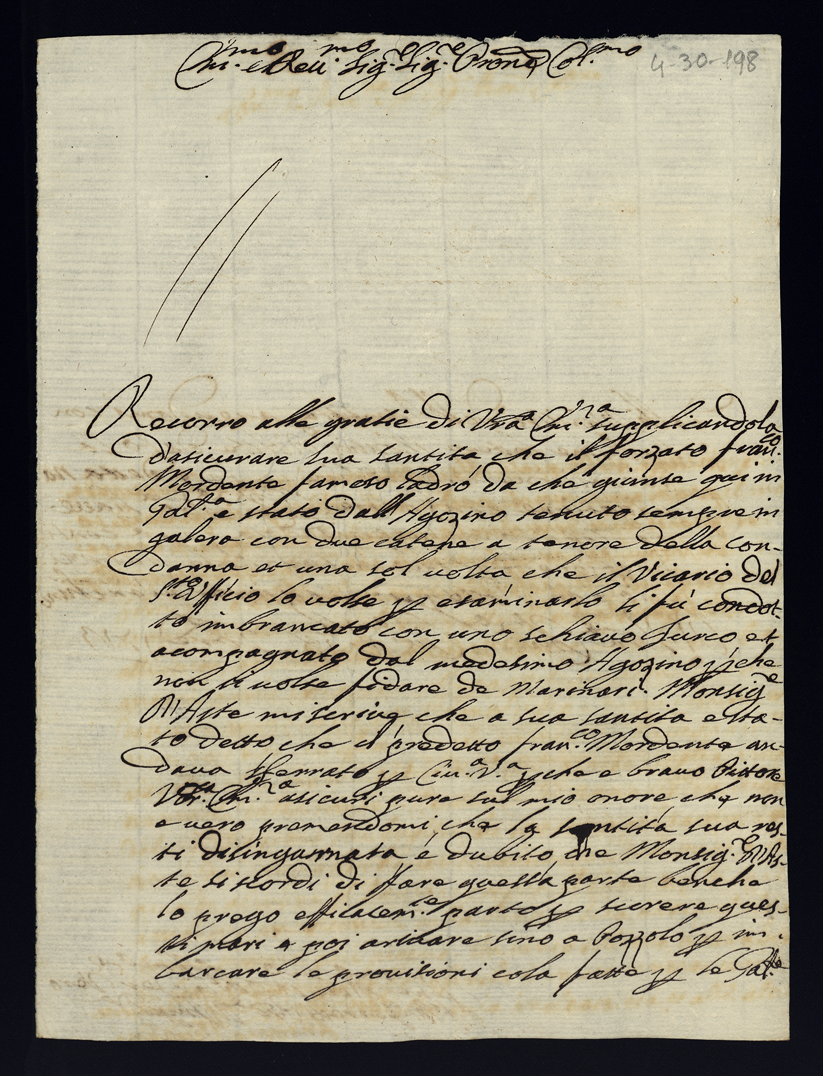 Em.mo e Reu.mo Sig.re Sig.re Prone Col.mo
4-30-198
Recorro alle gratie di Vra Em.za supplicandola
d'asicurare sua santita che il forzato Fran.co
Mordente famoso ladro da che giunse qui in
Gal.a è stato dall Agozino tenuto sempre in
galera con due catene a tenore della con-
danna et una sol volta che il Vicario del
S.to Offitio lo volse p esaminarlo li fù condot-
to imbrancato con uno schiavo Turco et
acompagnato dal medesimo Agozino p che
non si volse fidare de Marinari. Monsig.re
D'Aste mi scrive che a sua santita è sta-
to detto che il predetto Fran.co Mordente an-
dava sferrato p Ciu.a V.a p che e bravo Pittore
V.ra Em.za asicuri pure sul mio onore che non
e vero premendomi che la santità sua res-
ti disingannata e dubito che Monsig.re D'As-
te si scordi di fare questa parte benche
lo prego efficacem.te parto p scorere ques-
ti mari e poi arivare sino a Pozzolo p im-
barcare le provisioni cola fatte p le Gal.e